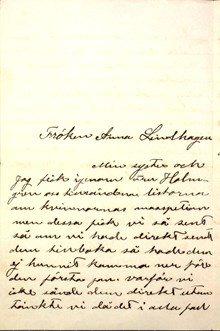 Fröken Anna Lindhagen
Min syster och
jag fick igenom fru Holm-
gren oss tillsända listorna
om kvinnornas masspetition
men dessa fick vi så sent
så om vi hade direkt sendt
dem tillbaka så hade dem
ej hunnit komma ner för
den första jan. varför vi
icke sände dem direkt utan
tänkte vi då det i alla fall